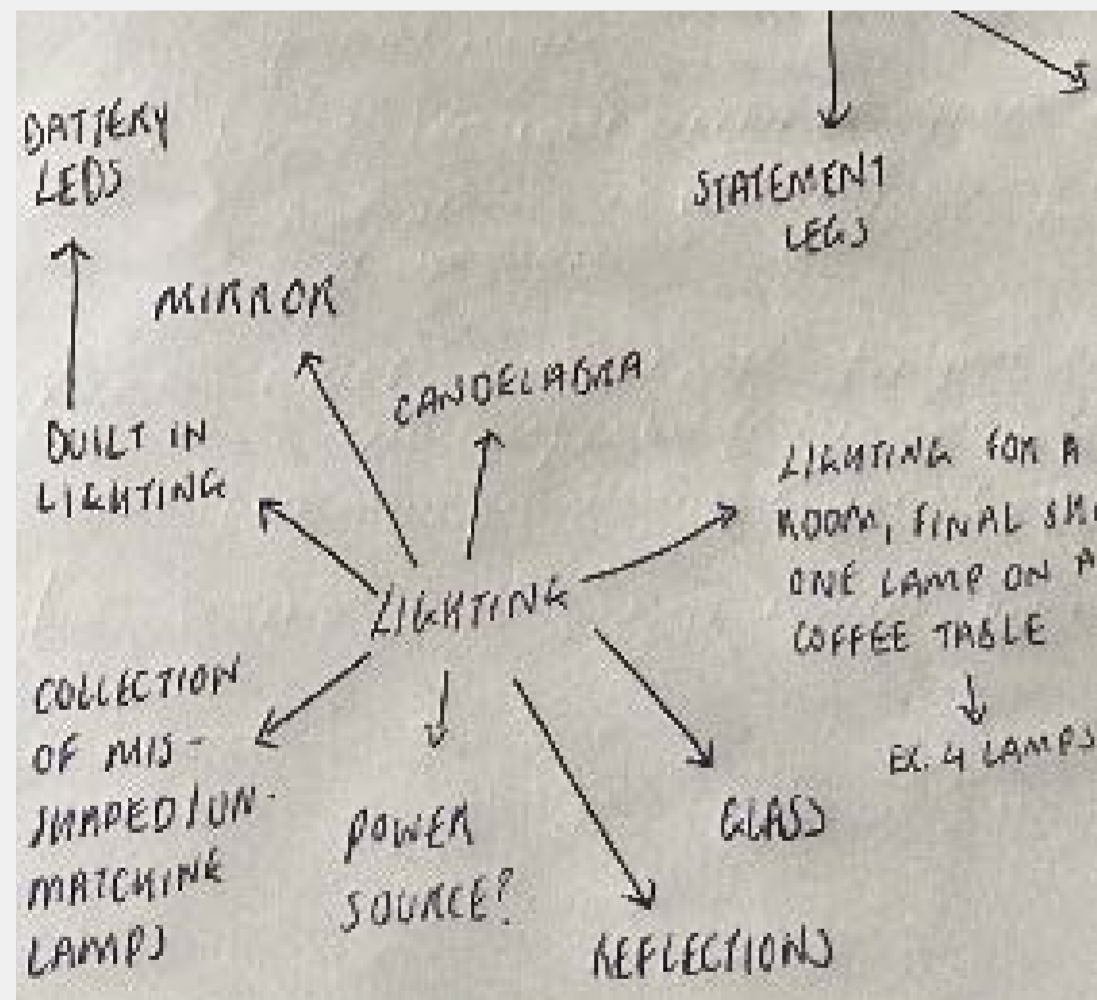 BATTERY
LEDS
STATEMENT
LEGS
MIRROR
CANDELABRA
BUILT IN
LIGHTING
LIGHTING FOR A
ROOM, FINAL
ONE LAMP ON A
COFFEE TABLE
EX. 4 LAMPS
LIGHTING
COLLECTION
OF MIS-
SHAPED/UN-
MATCHING
LAMPS
POWER
SOURCE?
GLASS
REFLECTIONS